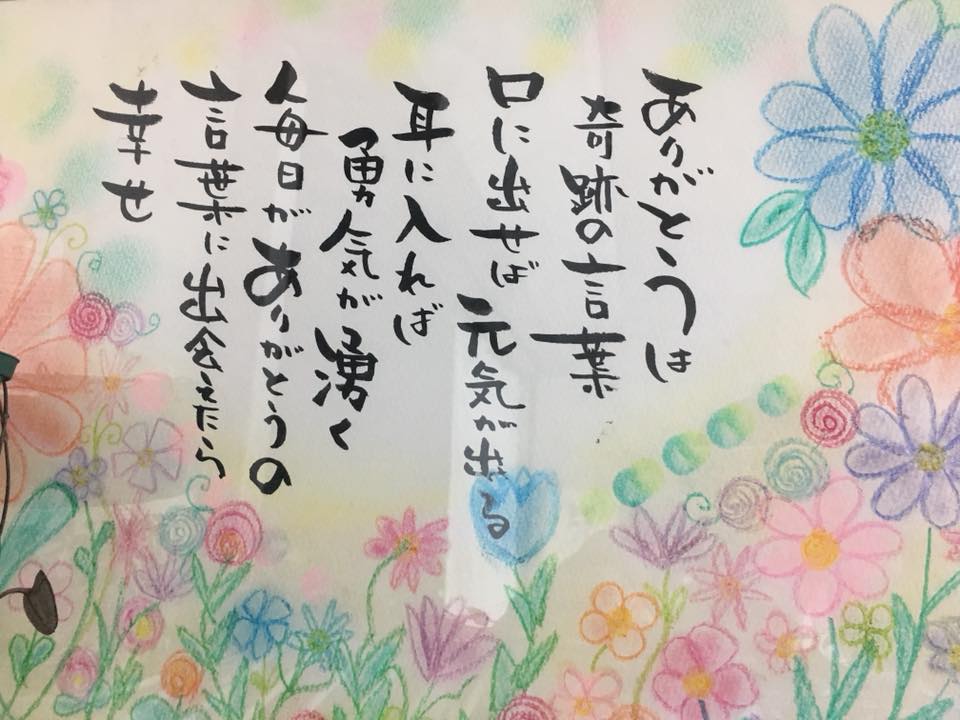 ありがとうは
奇跡の言葉
口に出せば
元気が出る
耳に入れば
勇気が湧く
毎日がありがとうの
言葉に出会えたら
幸せ